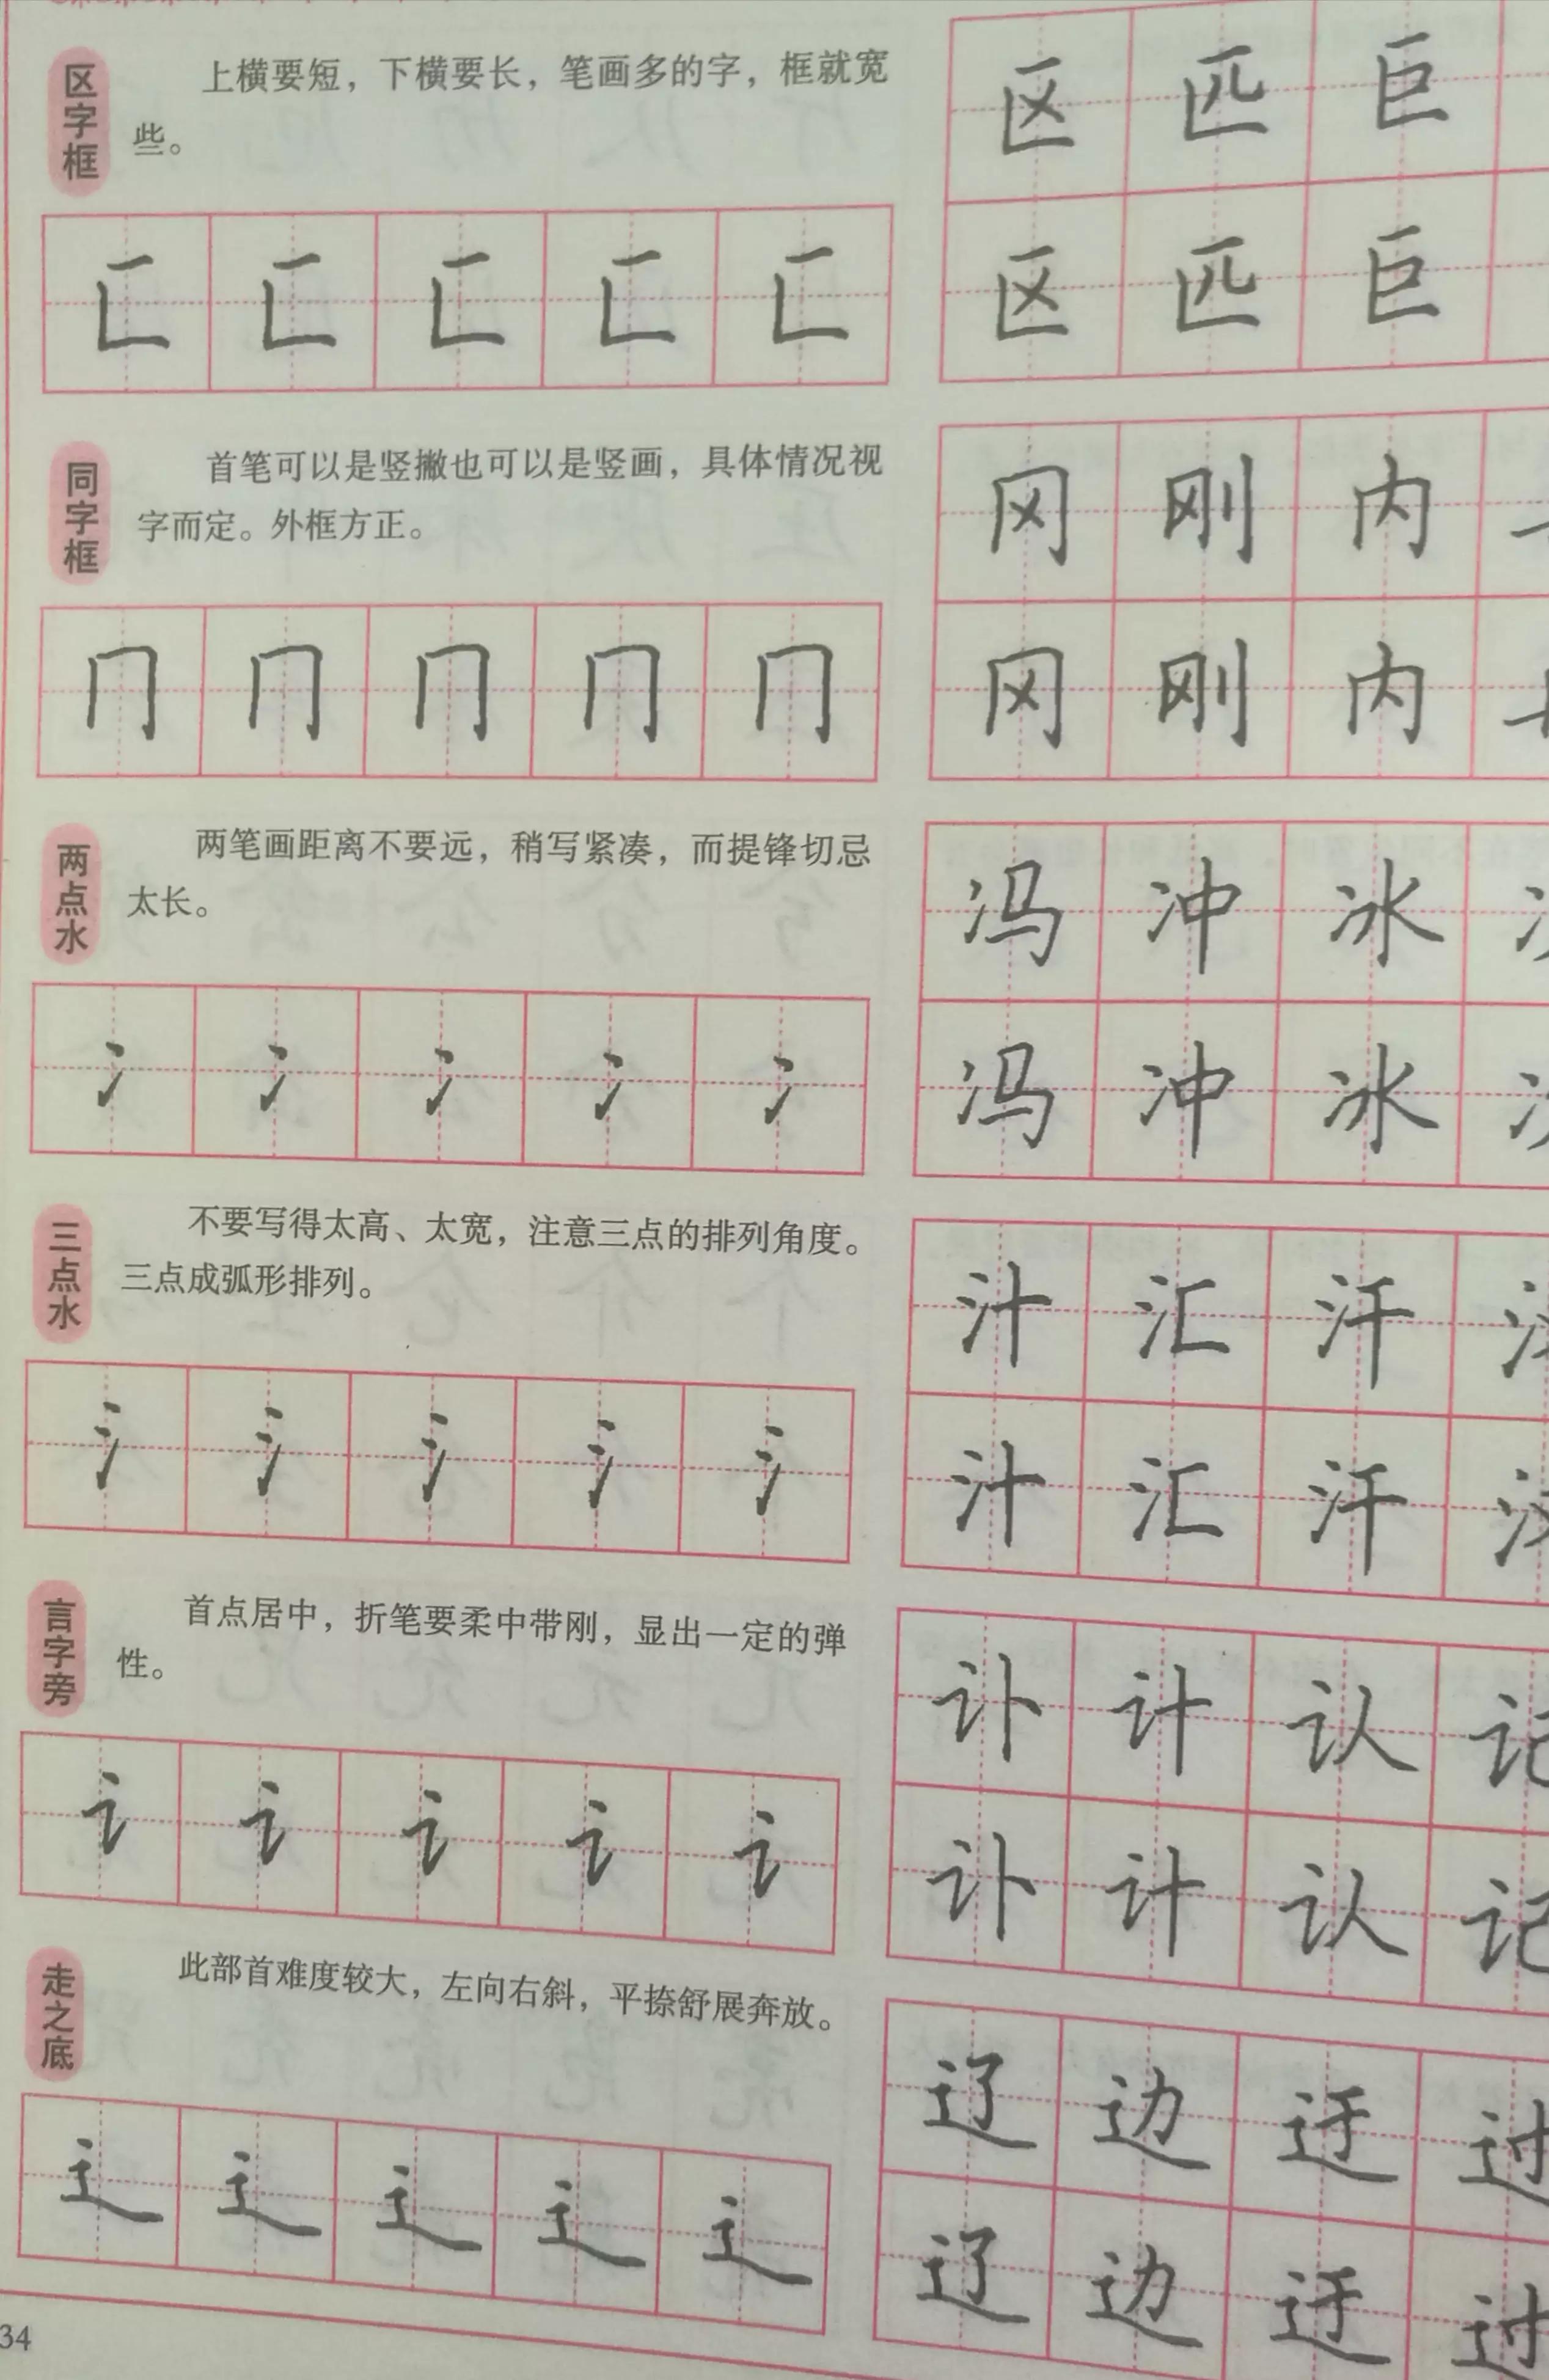 区字框
上横要短，下横要长，笔画多的字，框就宽
些。
匚 匚 匚 匚 匚
区 匹 巨
区 匹 巨
同字框
首笔可以是竖撇也可以是竖画，具体情况视
字而定。外框方正。
冂 冂 冂 冂 冂
冈 刚 内
冈 刚 内
两点水
两笔画距离不要远，稍写紧凑，而提锋切忌
太长。
冫 冫 冫 冫 冫
冯 冲 冰
冯 冲 冰
三点水
不要写得太高、太宽，注意三点的排列角度。
三点成弧形排列。
氵 氵 氵 氵 氵
汁 汇 汗
汁 汇 汗
言字旁
首点居中，折笔要柔中带刚，显出一定的弹
性。
讠 讠 讠 讠 讠
讣 计 认 记
讣 计 认 记
走之底
此部首难度较大，左向右斜，平捺舒展奔放。
辶 辶 辶 辶 辶
辽 边 迂 过
辽 边 迂 过
34